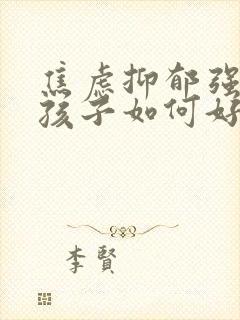 焦虑抑郁强
孩子如何好
李賢